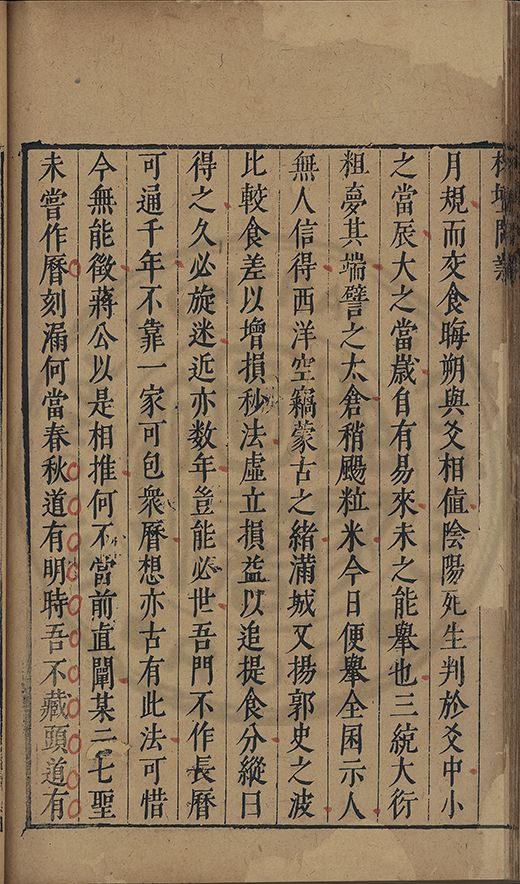 月規而交食晦朔與爻相值陰陽死生判於爻中小
之當辰大之當歲自有易來未之能舉也三統大衍
粗夢其端譬之太倉稍颺粒米今日便舉全囷示人
無人信得西洋空竊蒙古之緒滿城又揚郭史之波
比較食差以增損秒法虛立損益以追提食分縱曰
得之久必旋迷近亦数年豈能必世吾門不作長曆
可通千年不靠一家可包衆曆想亦古有此法可惜
今無能徵蔣公以是相推何不當前直闡某二七聖
未嘗作曆刻漏何當春秋道有明時吾不藏頭道有